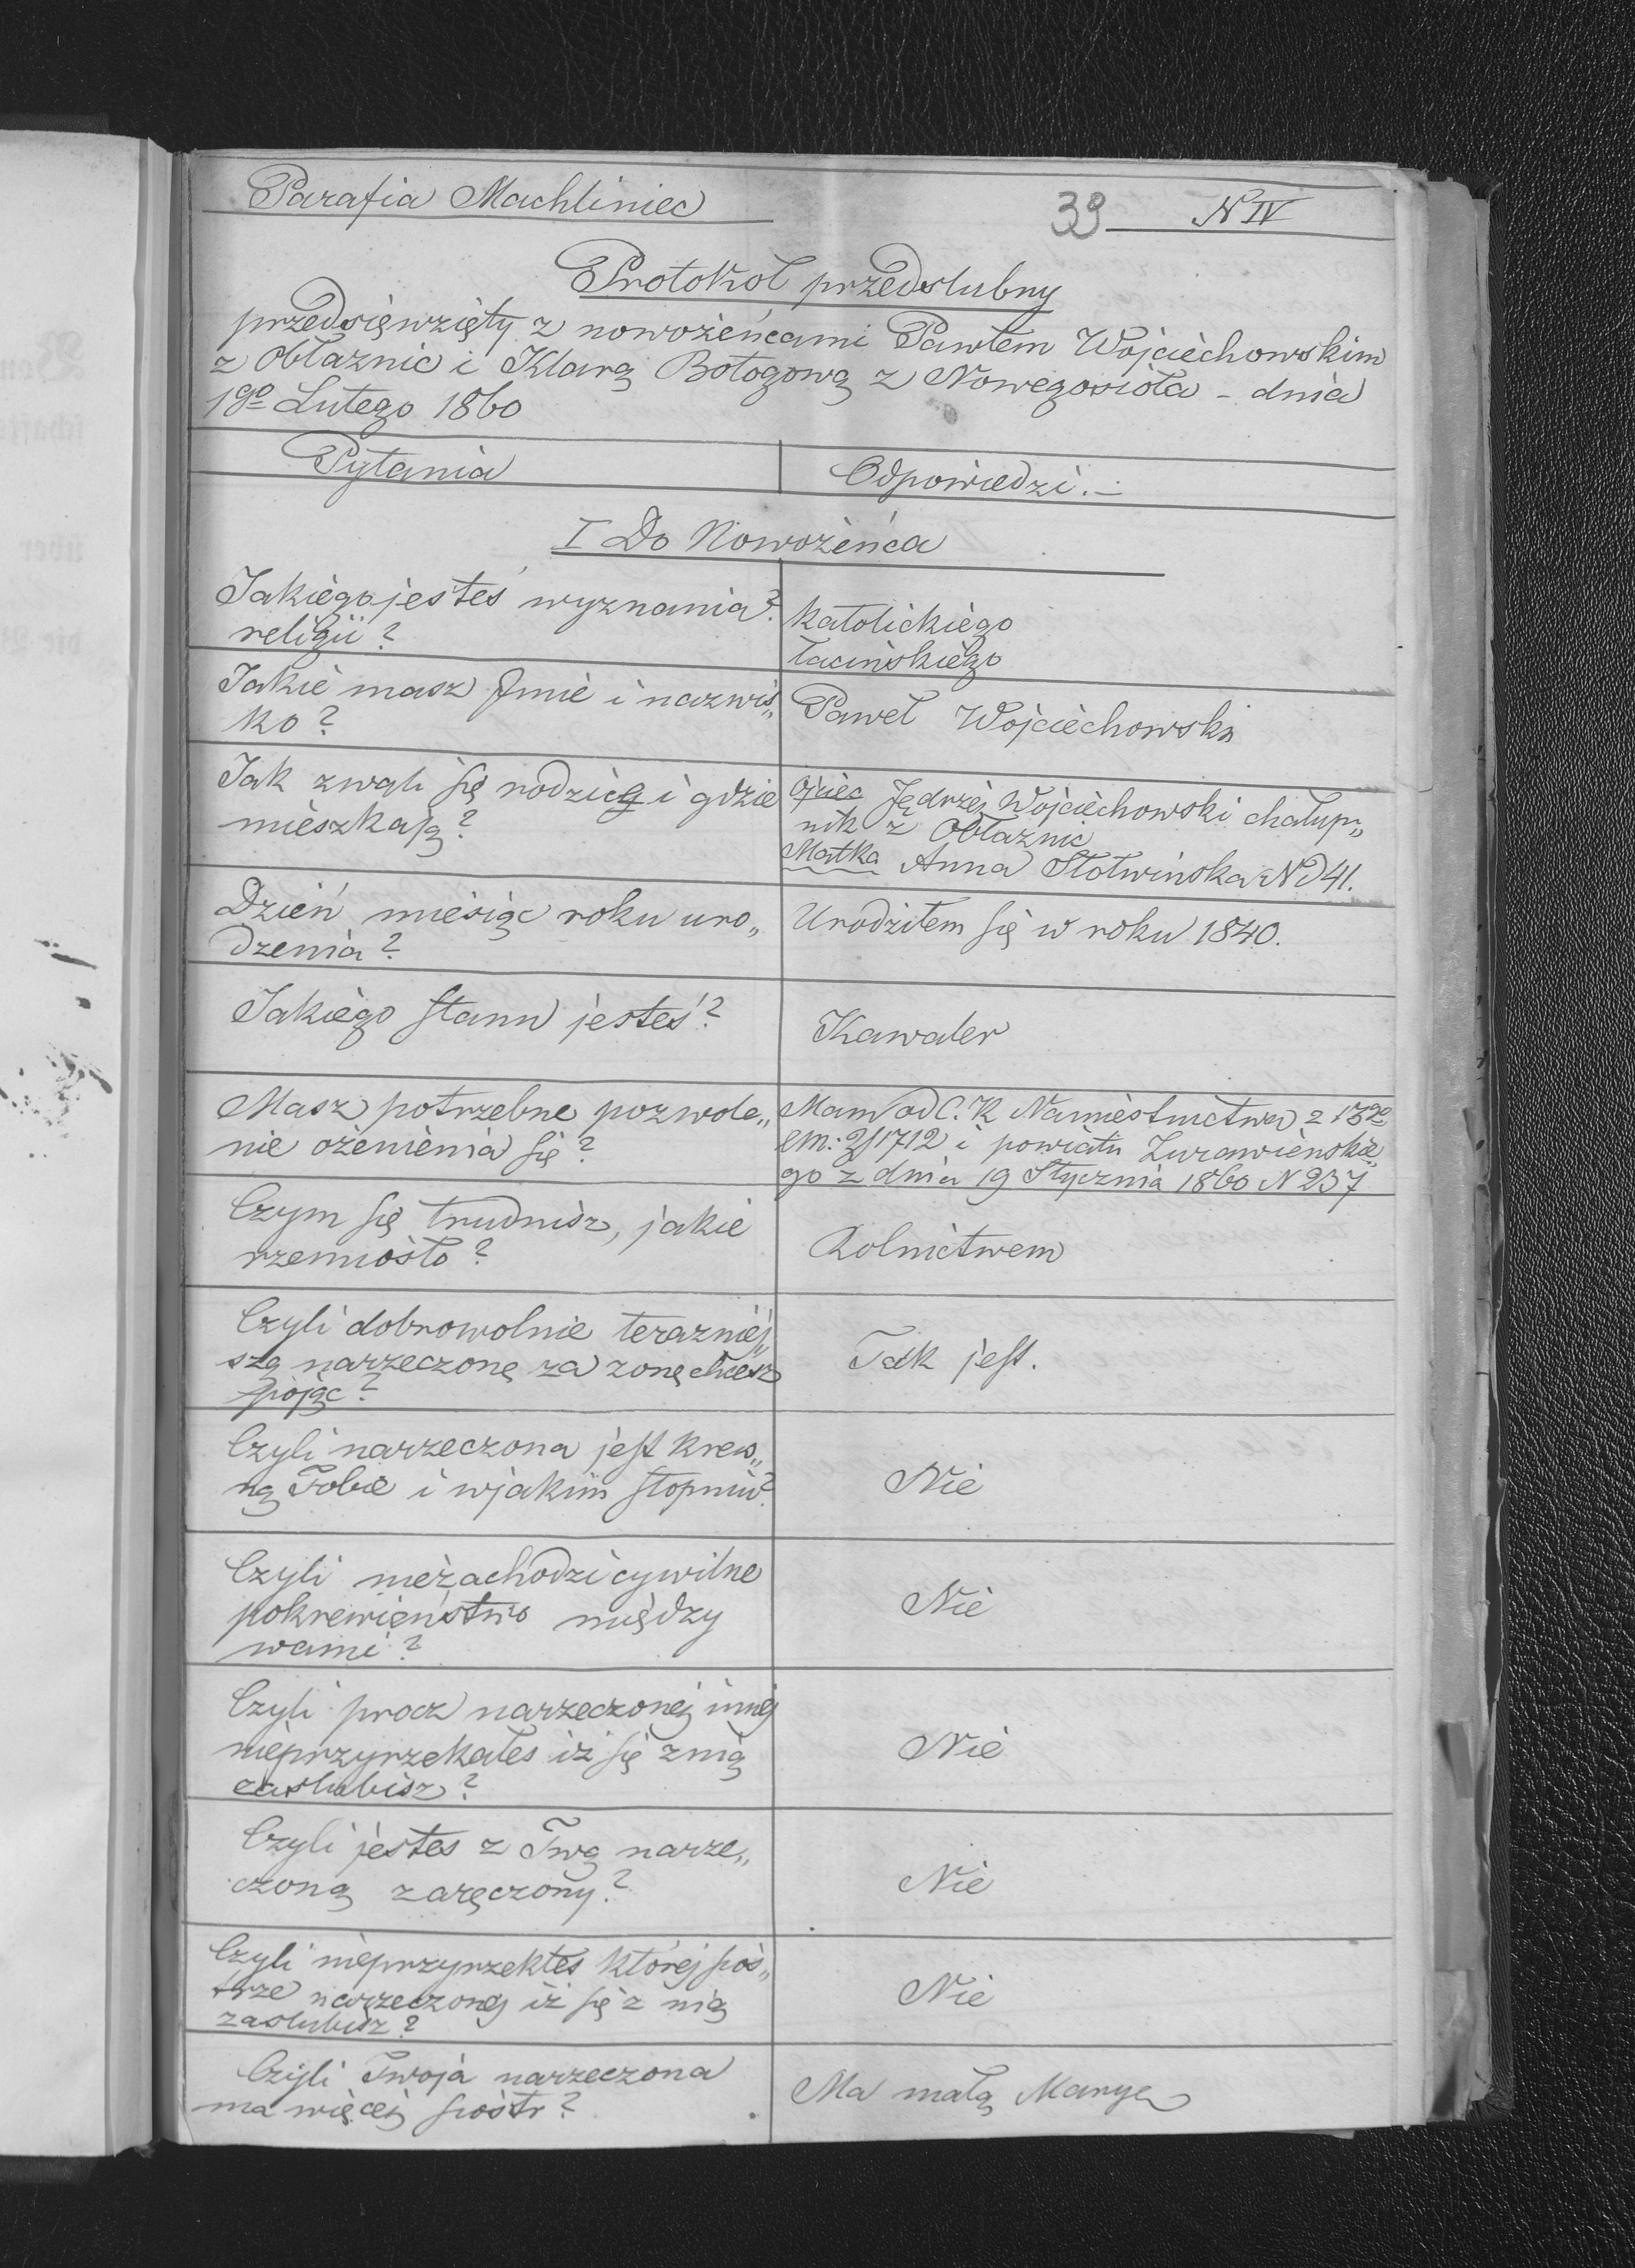 Parafia Machliniec
39 N IV
Protokoł przedslubny
przedsięwzięty z nowożeńcami Pawłem Wojciechowskim
z Obłaznic i Klarą Bołogową z Nowegosioła - dnia
19º Lutego 1860
Pytania
Odpowiedzi.-
I Do Nowożeńca
Jakiego jesteś wyznania?
religii?
katolickiego
łacińskiego
Jakie masz Imie i nazwis„
ko?
Paweł Wojciechowski
Jak zwali się rodzice i gdzie
mieszkają?
Ojciec Jędrzej Wojciechowski chałup„
nik z Obłaznic
Matka Anna Słotwińska Nd 41.
Dzień miesiąc roku uro„
dzenia?
Urodziłem się w roku 1840.
Jakiego stanu jesteś?
Kawaler
Masz potrzebne pozwole„
nie ożenienia się?
Mam od C. K Namiestnictwa z
i powiatu Zurawienskie„
go z dnia 19 Stycznia 1860 N 237
Czym się trudnisz, jakie
rzemiosło?
Rolnictwem
Czyli dobrowolnie teraźniej„
szą narzeczonę za zonę chcesz
pojąc?
Tak jest.
Czyli narzeczona jest krew„
ną Tobie i wjakim stopniu?
Nie
Czyli niezachodzi cywilne
pokrewieństwo między
wami?
Nie
Czyli procz narzeczonej innej
nieprzyrzekałes iż się znią
zaslubisz?
Nie
Czyli jestes z Twą narze„
czoną zaręczony?
Nie
Czyli nieprzyrzekłes której sios„
trze narzeczonej iż się z nią
zaslubisz?
Nie
Czyli Twoja narzeczona
ma więcej siostr?
Ma małą Maryę